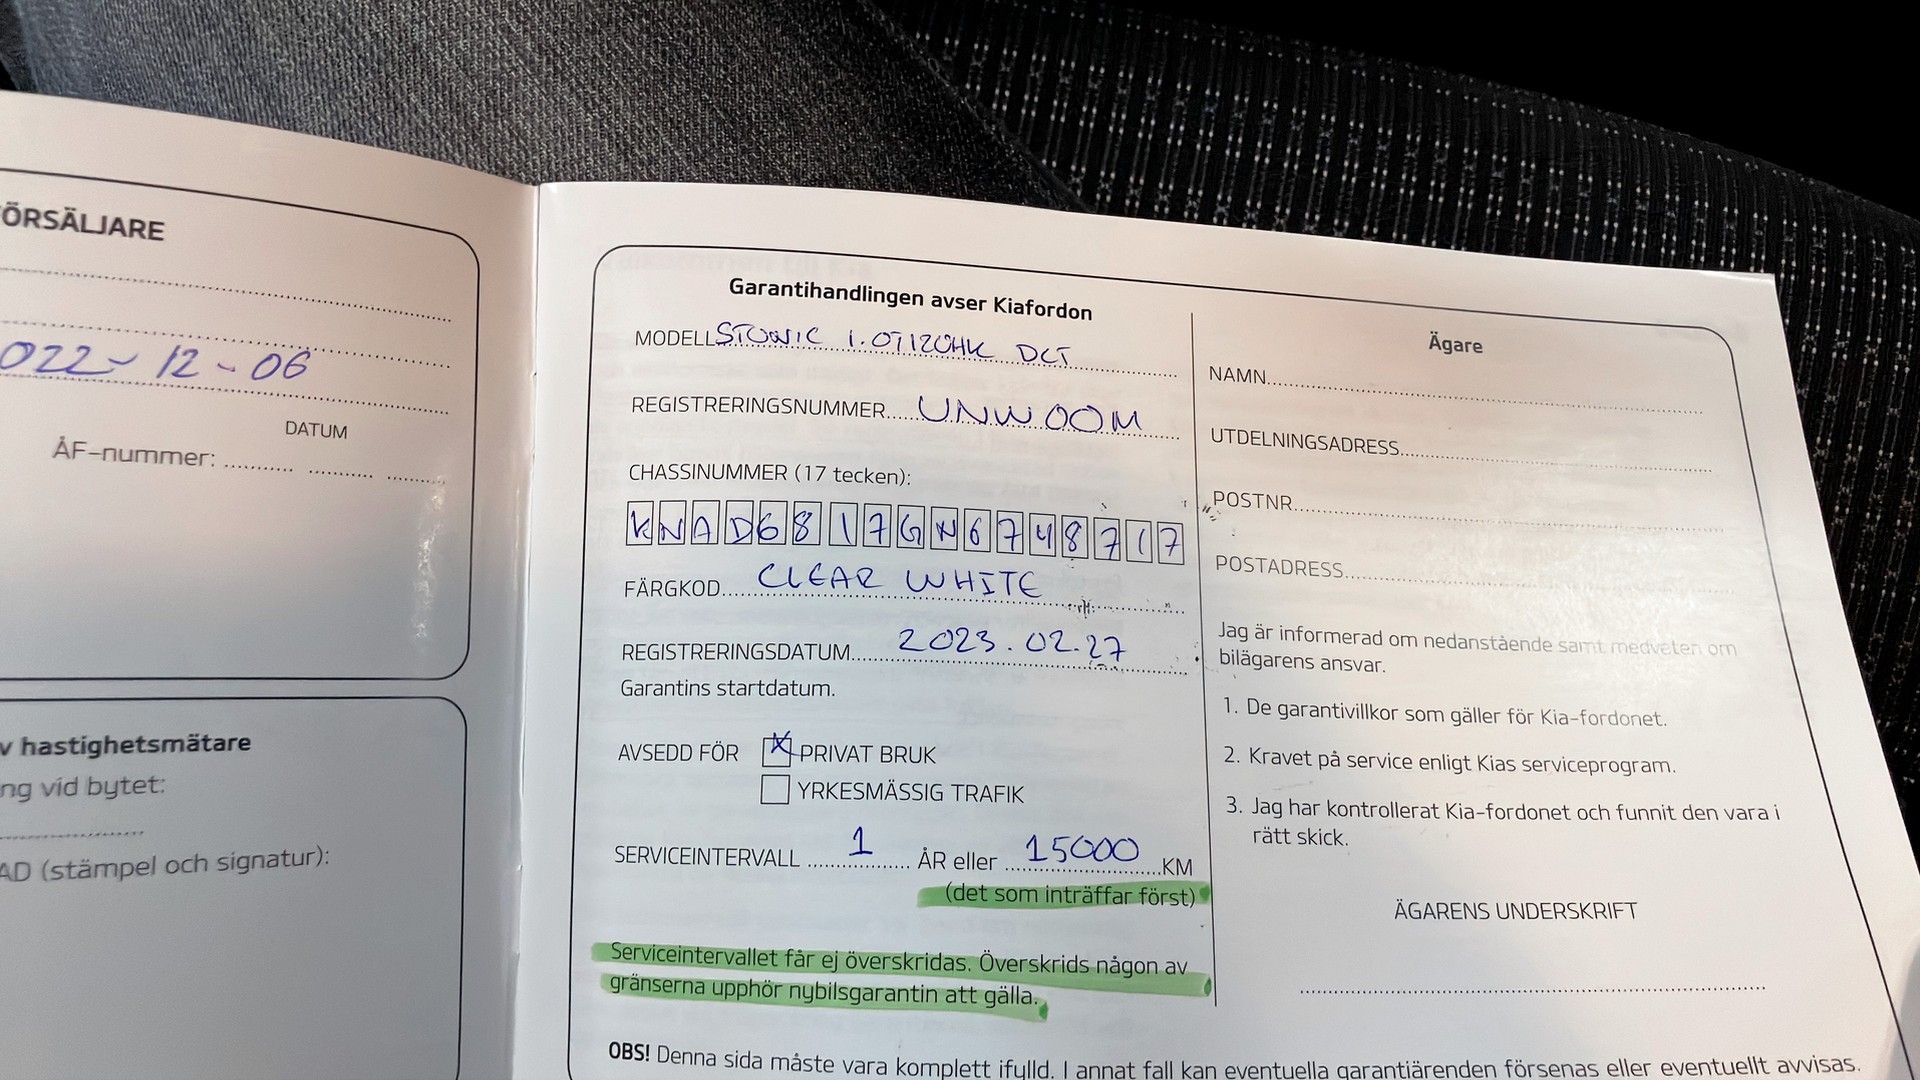 ÖRSÄLJARE
022-12-06
DATUM
ÅF-nummer:
v hastighetsmätare
ng vid bytet:
AD (stämpel och signatur):
Garantihandlingen avser Kiafordon
MODELL STONIC 1.0T120HK DCT
REGISTRERINGSNUMMER UNW00M
CHASSINUMMER (17 tecken):
KNAD6817GN6748717
FÄRGKOD CLEAR WHITE
REGISTRERINGSDATUM 2023.02.27
Garantins startdatum.
AVSEDD FÖR X PRIVAT BRUK
YRKESMÄSSIG TRAFIK
SERVICEINTERVALL 1 ÅR eller 15000 KM
(det som inträffar först)
Serviceintervallet får ej överskridas. Överskrids någon av
gränserna upphör nybilsgarantin att gälla.
Ägare
NAMN
UTDELNINGSADRESS
POSTNR
POSTADRESS
Jag är informerad om nedanstående samt medveten om
bilägarens ansvar.
1. De garantivillkor som gäller för Kia-fordonet.
2. Kravet på service enligt Kias serviceprogram.
3. Jag har kontrollerat Kia-fordonet och funnit den vara i
rätt skick.
ÄGARENS UNDERSKRIFT
OBS! Denna sida måste vara komplett ifylld. I annat fall kan eventuella garantiärenden försenas eller eventuellt avvisas.